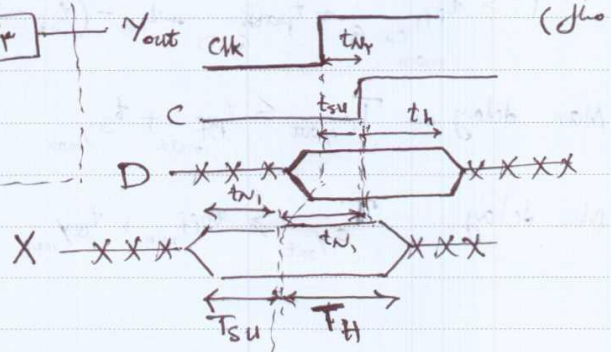 Yout
Clk
tNr
C
tsu
th
D
tN1
tN1
X
TSU
TH